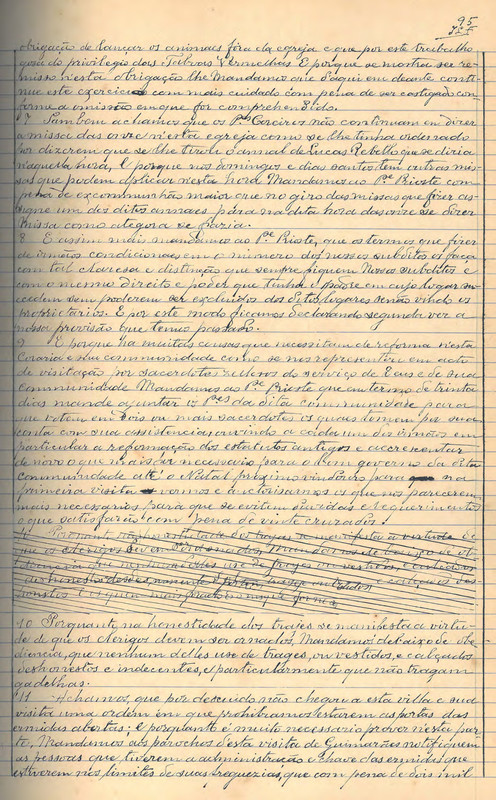 95
obrigação de lançar os animaes fóra da egreja e que por este trabalho
gosa do privilegio das Taboas Vermelhas. E porque se mostra ser re-
misso n'esta obrigação lhe Mandamos que d'aqui em deante conti-
nue este exercicio com mais cuidado com pena de ser castigado con-
forme a omissão em que for comprehendido.
7 Tambem achamos que os P.es Coreiros não continuam em dizer
a missa das onze n'esta egreja como se lhe tinha ordenado
por dizerem que se lhe tirou o annal de Lucas Rebello que se dizia
n'aquella hora, E porque nos domingos e dias santos tem outras mis-
sas que podem aplicar n'esta hora Mandamos ao P.e Prioste com
pena de excommunhão maior que no giro das missas que fizer as-
signe um dos ditos annaes para na dita hora das onze se dizer
missa como até gora se fazia.
8 E assim mais mandamos ao P.e Prioste, que os termos que fizer
de irmãos condicionaes em o numero dos nossos subditos os faça
com tal claresa e distincção que sempre fiquem nossos subditos e
com o mesmo direito e poder que tinha o padre em cujo logar su-
cedem sem poderem ser excluidos dos ditos logares senão vindo os
proprietarios. E por este modo ficamos declarando segunda vez a
nossa provisão que temos passado.
9 E porque ha muitas cousas que necessitam de reforma n'esta
Coraria e sua communidade como se nos representou em acto
de visitação por sacerdotes zelosos do serviço de Deus e de sua
communidade Mandamos ao P.e Prioste que em termo de trinta
dias mande ajuntar os P.es da dita communidade para
que votem em dois ou mais sacerdotes os quaes tomem por sua
conta com sua assistencia ouvindo a cada um dos irmãos em
particular a reformação dos estatutos antigos e accrescentar
de novo o que mais fôr necessario para o bom governo da dita
communidade até o Natal proximo vindouro para na
primeira visita vermos e auctorisarmos os que nos parecerem
mais necessarios para que se evitem duvidas e requerimentos
o que satisfarão com pena de vinte cruzados.
10 Porquanto, na honestidade dos trages se manifesta a virtu-
de de que os clerigos devem ser ornados, Mandamos debaixo de obe-
diencia, que nenhum d'elles use de trages, ou vestidos, e calçados
deshonestos e indecentes, e particularmente que não tragam
gadelhas.
11 Achamos, que por descuido não chegou a esta villa e sua
visita uma ordem em que prohibiamos estarem as portas das
ermidas abertas; e porquanto é muito necessario prover n'esta par-
te, Mandamos aos parochos d'esta visita de Guimarães notifiquem
as pessoas que tiverem a administração e chave das ermidas que
estiverem nos limites de suas freguezias, que com pena de dois mil